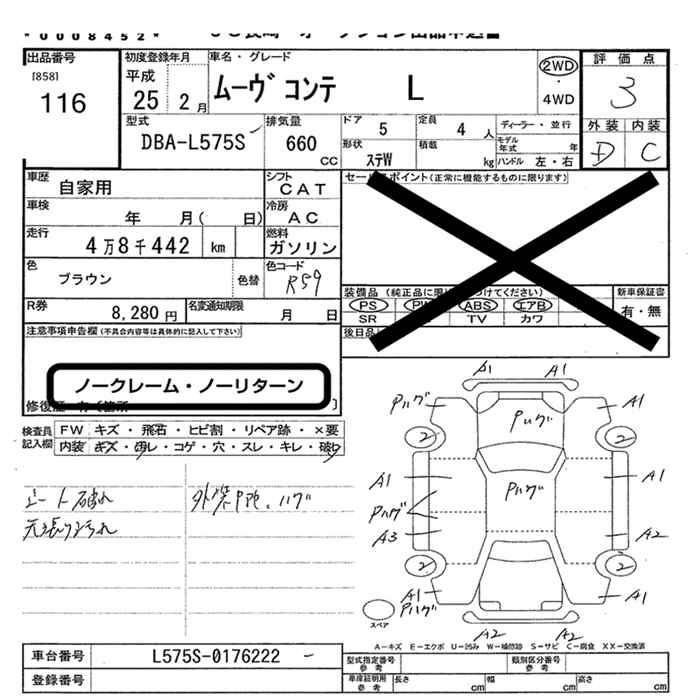 *0008452*
出品番号
[858]
116
初度登録年月
平成
25 2月
車名・グレード
ムーヴ コンテ L
2WD
・
4WD
評価点
3
外装 内装
D C
型式
DBA-L575S
排気量
660
CC
ドア 5
定員 4 人
形状 ステW
積載 kg
ディーラー・並行
モデル年式 年
ハンドル 左・右
車歴 自家用
シフト CAT
車検 年 月( 日)
冷房 AC
走行 4万8千442 km
燃料 ガソリン
色 ブラウン 色替
色コード R59
R券 8,280円
名変通知期限 月 日
セールスポイント(正常に機能するものに限ります)
装備品(純正品に限
つけてください)
PS PW ABS エアB
SR TV カワ
新車保証書
有・無
後日品
注意事項申告欄(不具合内容等は具体的に記入して下さい)
ノークレーム・ノーリターン
修復歴
検査員記入欄
FW キズ・飛石・ヒビ割・リペア跡・×要
内装 キズ・汚レ・コゲ・穴・スレ・キレ・破レ
シート破れ
天張り汚れ
外装凹跡、ハゲ
A1 A1
Pハゲ Pハゲ A1
2 2
A1 Pハゲ A1
Pハゲ
A3 A2
2 2
A1 A1
Pハゲ
スペア
A2 A2
A-キズ E-エクボ U-凹み W-補修跡 S-サビ C-腐食 XX-交換済
車台番号 L575S-0176222
登録番号
型式指定番号
参考
類別区分番号
参考
車庫証明用
参考
長さ cm 幅 cm 高さ cm